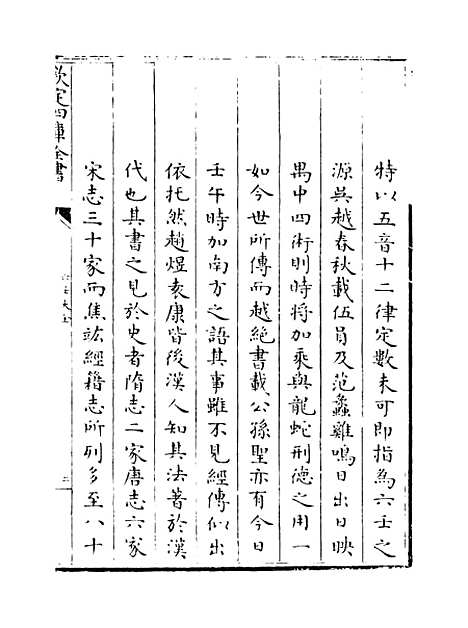 特以五音十二律定數未可即指為六壬之
源吳越春秋載伍員及范蠡雞鳴日出日昳
禺中四術則時將加乘與龍蛇刑德之用一
如今世所傳而越絕書載公孫聖亦有今日
壬午時加南方之語其事雖不見經傳似出
依托然趙煜袁康皆後漢人知其法著於漢
代也其書之見於史者隋志二家唐志六家
宋志三十家而焦竑經籍志所列多至八十
欽定四庫全書
二